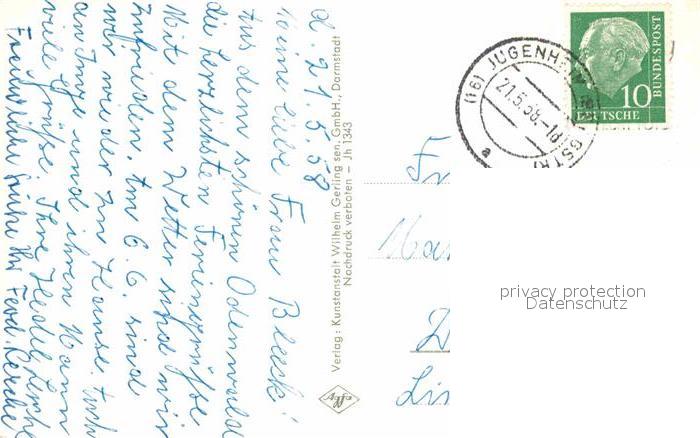 d. 21.5.58
Meine liebe Frau Bleck!
Aus dem schönen Odenwald
die herzlichsten Feriengrüße.
Mit dem Wetter sind wir
zufrieden. Am 6.6. sind
wir wieder zu Hause. Auch
an Inge und ihren Mann
viele Grüße. Ihre
Freundliche Grüße Ihr Ferd.
Verlag: Kunstanstalt Wilhelm Gerling sen. GmbH., Darmstadt
Nachdruck verboten Jh 1343
Agfa
(16) JUGENHEIM
21.5.58.-18
a
10
DEUTSCHE
BUNDESPOST
Fr
Lin
privacy protection
Datenschutz